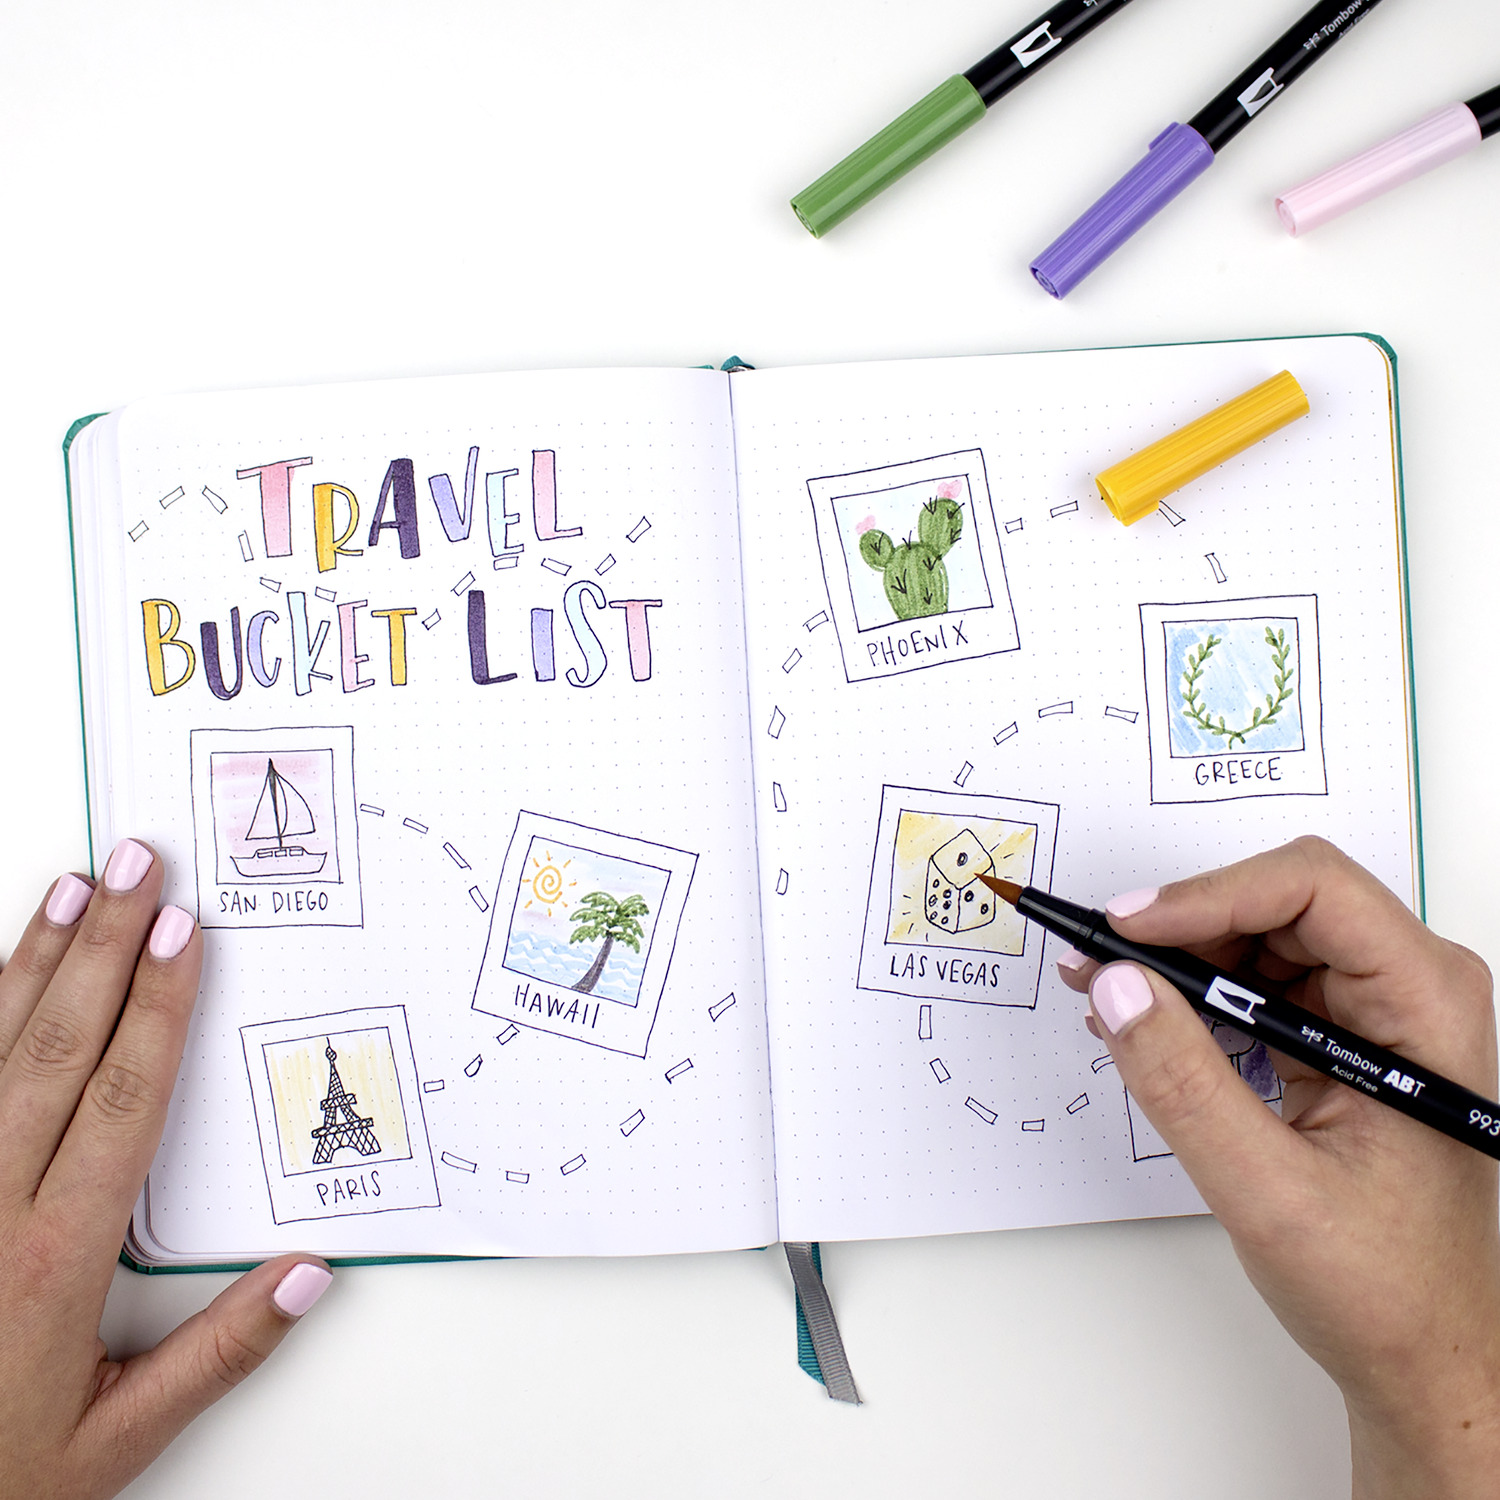 TRAVEL
BUCKET LIST
SAN DIEGO
HAWAII
PARIS
PHOENIX
GREECE
LAS VEGAS
Tombow
Acid Free
Tombow ABT
Acid Free
993